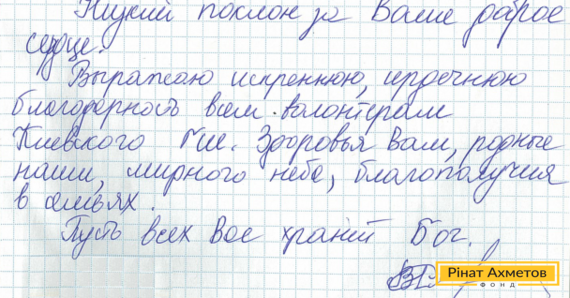 Низкий поклон за Ваше доброе
сердце.
Выражаю искреннюю, сердечнюю
благодарность всем волонтерам
Киевского
Здоровья Вам, родные
наши, мирного неба, благополучия
в семьях.
Пусть всех Вас хранит Бог.
Рінат Ахметов
ФОНД